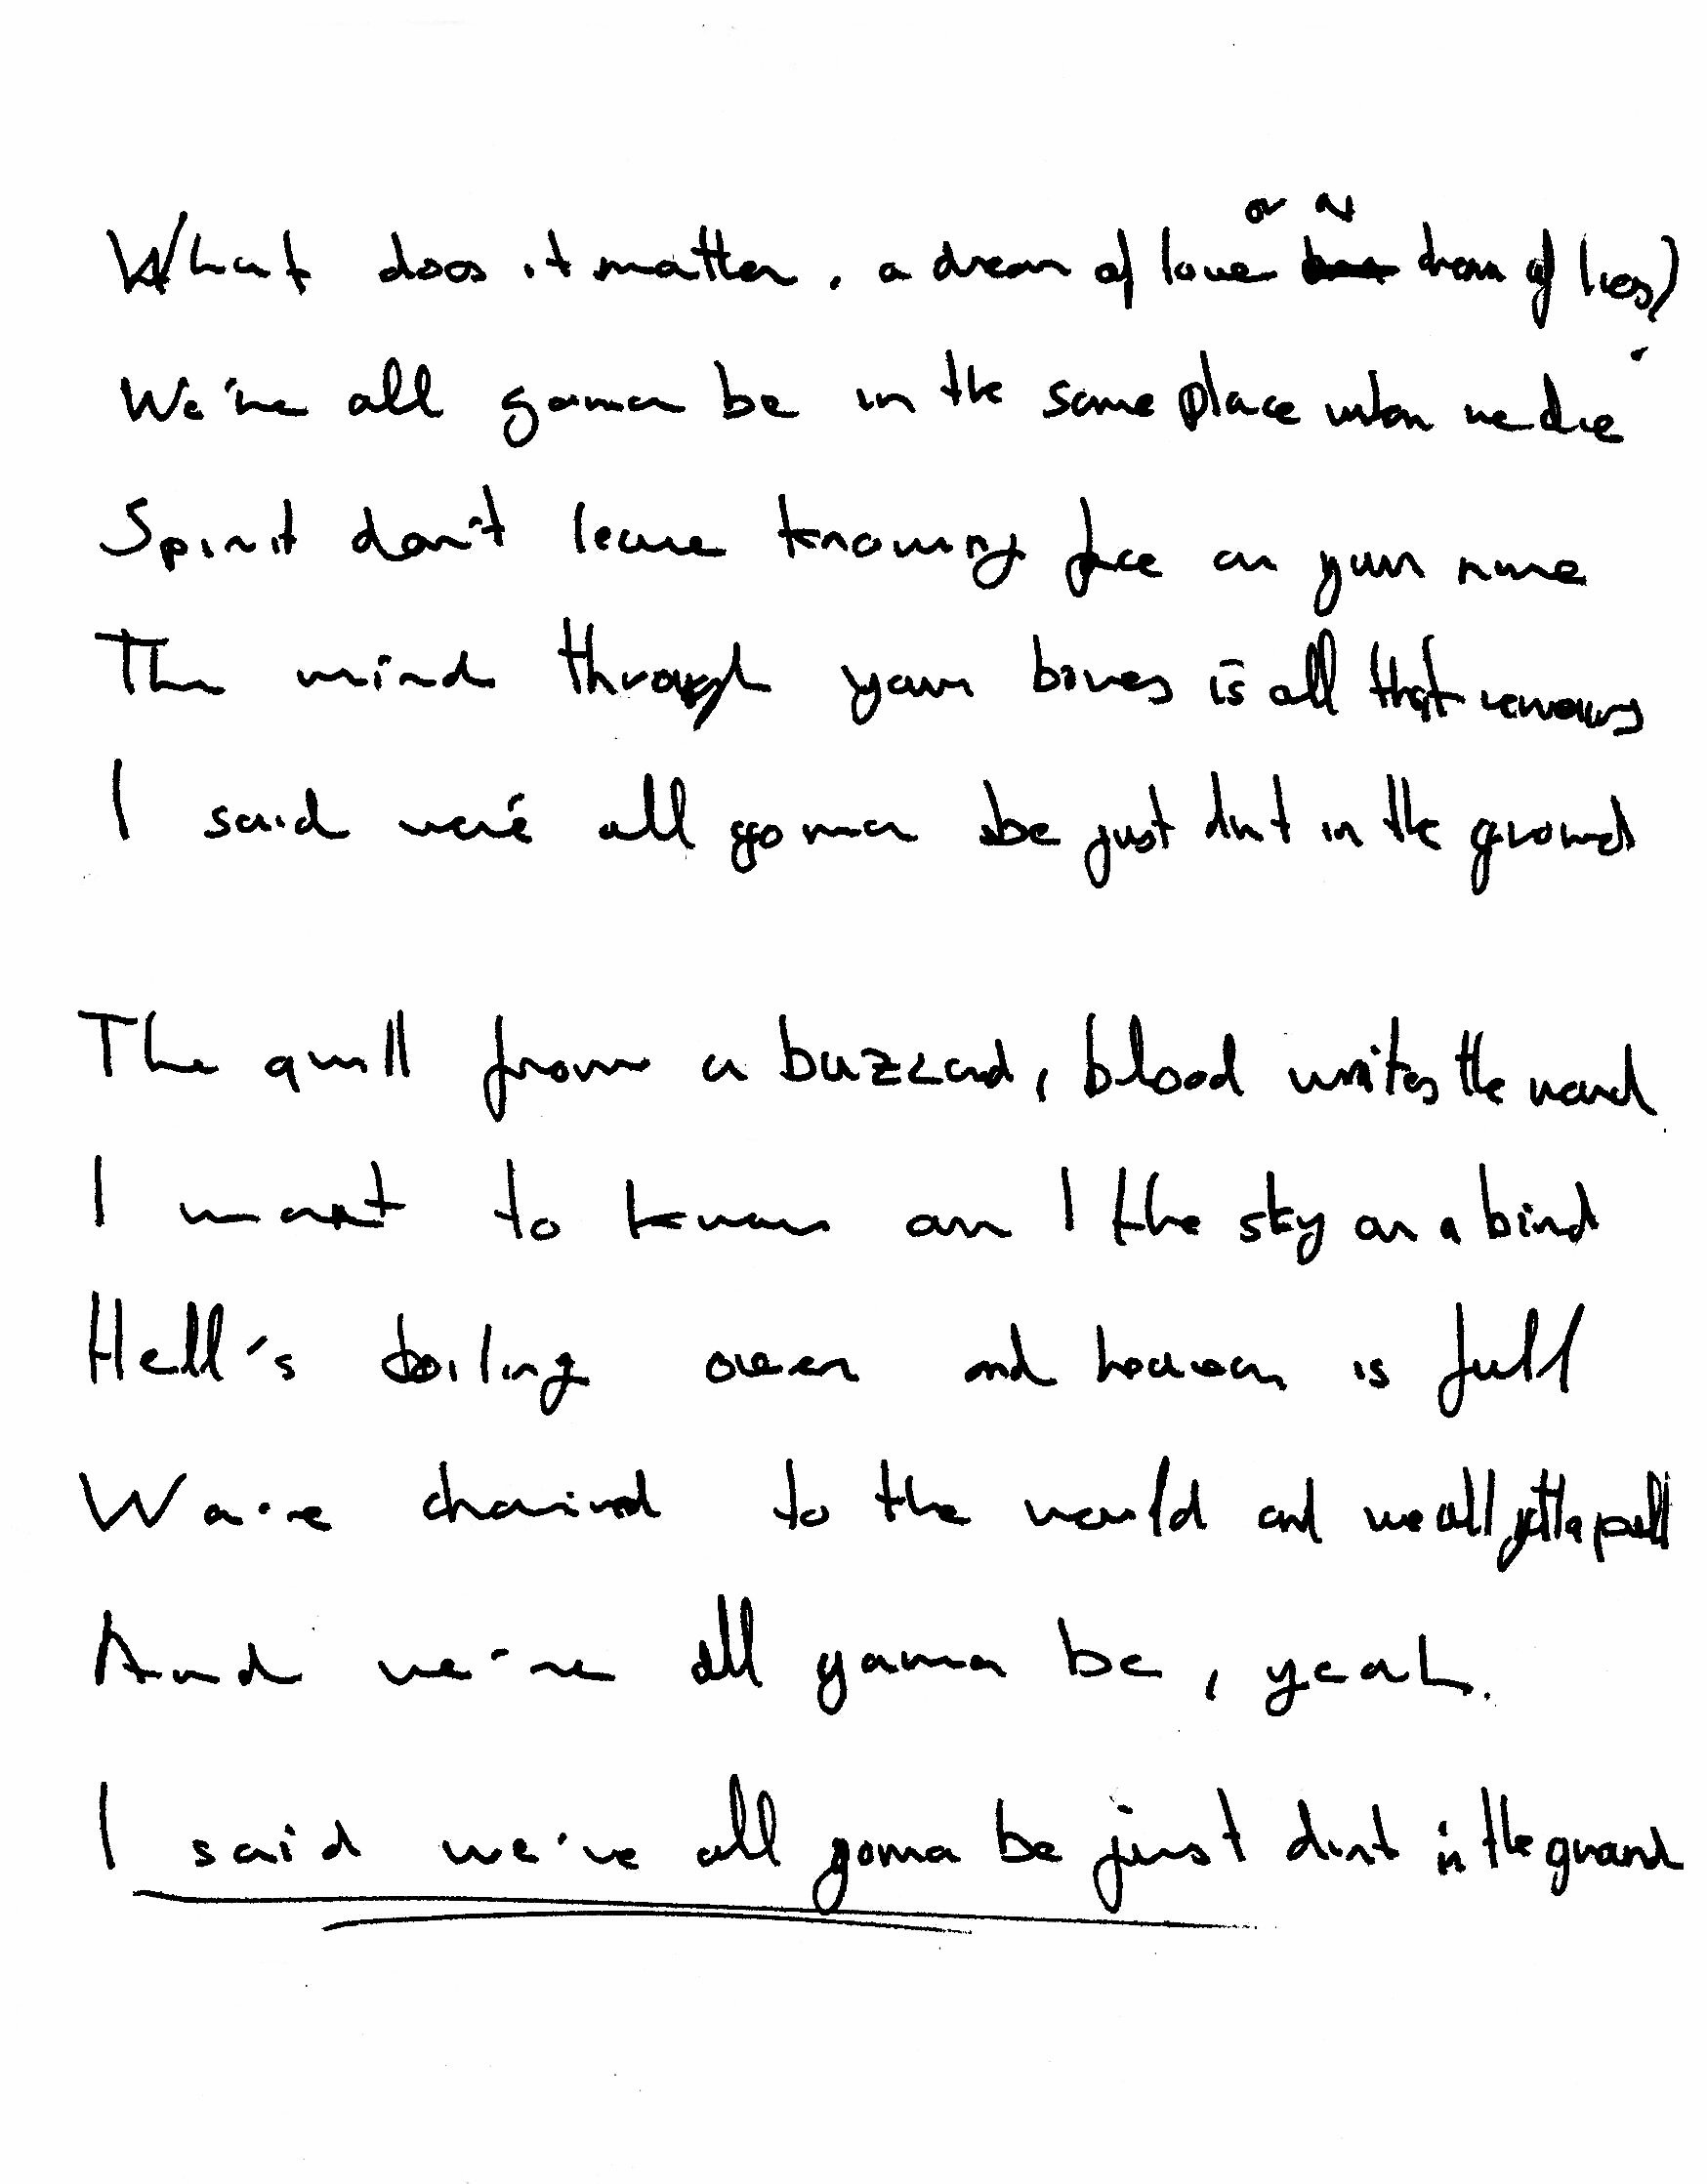 What does it matter, a dream of love or a dream of lies?
We're all gonna be in the same place when we die
Spirit don't leave knowing face or your name
The wind through your bones is all that remains
I said we're all gonna be just dirt in the ground
The quill from a buzzard, blood writes the word
I want to know am I the sky or a bird
Hell's boiling over and heaven is full
We're chained to the world and we all gotta pull
And we're all gonna be, yeah.
I said we're all gonna be just dirt in the ground